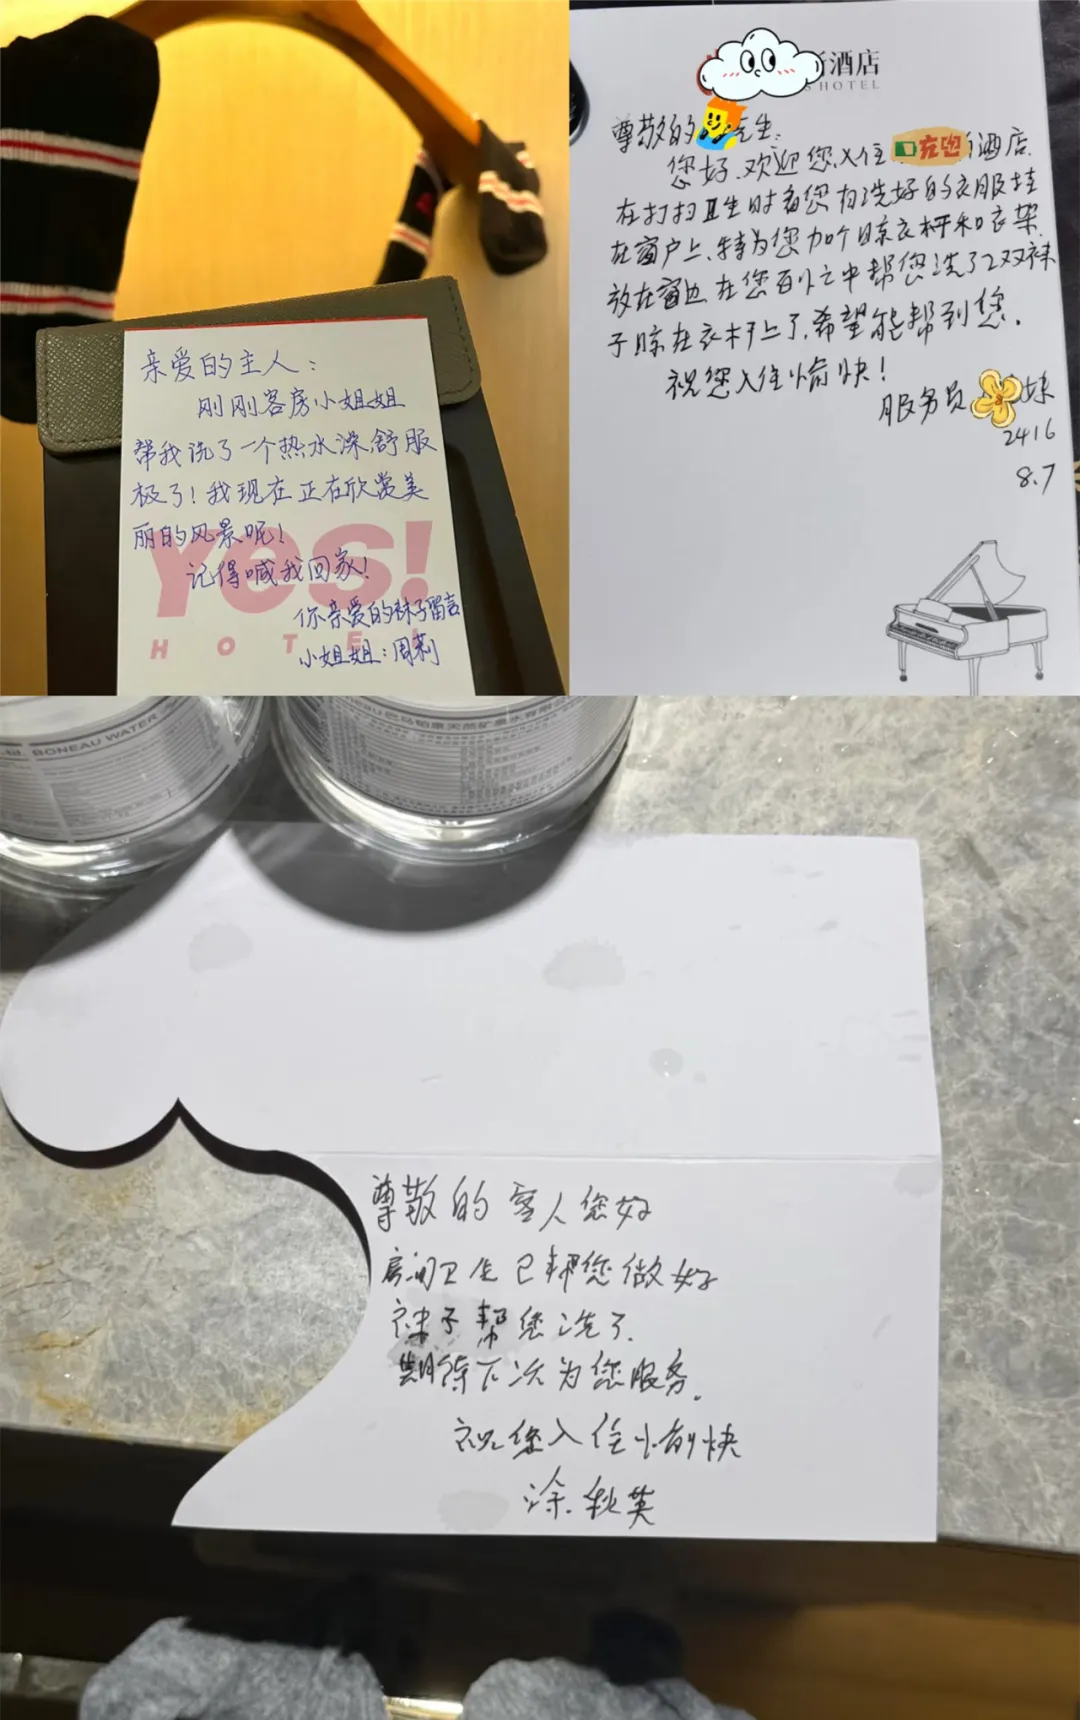 亲爱的主人：
刚刚客房小姐姐
帮我洗了一个热水澡,舒服
极了！我现在正在欣赏美
丽的风景呢！
记得喊我回家！
你亲爱的袜子留言
小姐姐：周莉
Yes!
HOTEL
酒店
HOTEL
尊敬的 先生:
您好.欢迎您入住 酒店.
在打扫卫生时看您有洗好的衣服挂
在窗户上.特为您加个晾衣杆和衣架.
放在窗边.在您百忙之中帮您洗了2双袜
子晾在衣杆上了.希望能帮到您.
祝您入住愉快！
服务员 妹
2416
8.7
充电
BONEAU WATER
巴马铂泉天然矿泉水有限公
尊敬的客人您好
房间卫生已帮您做好
袜子帮您洗了.
期待下次为您服务.
祝您入住愉快
涂秋英